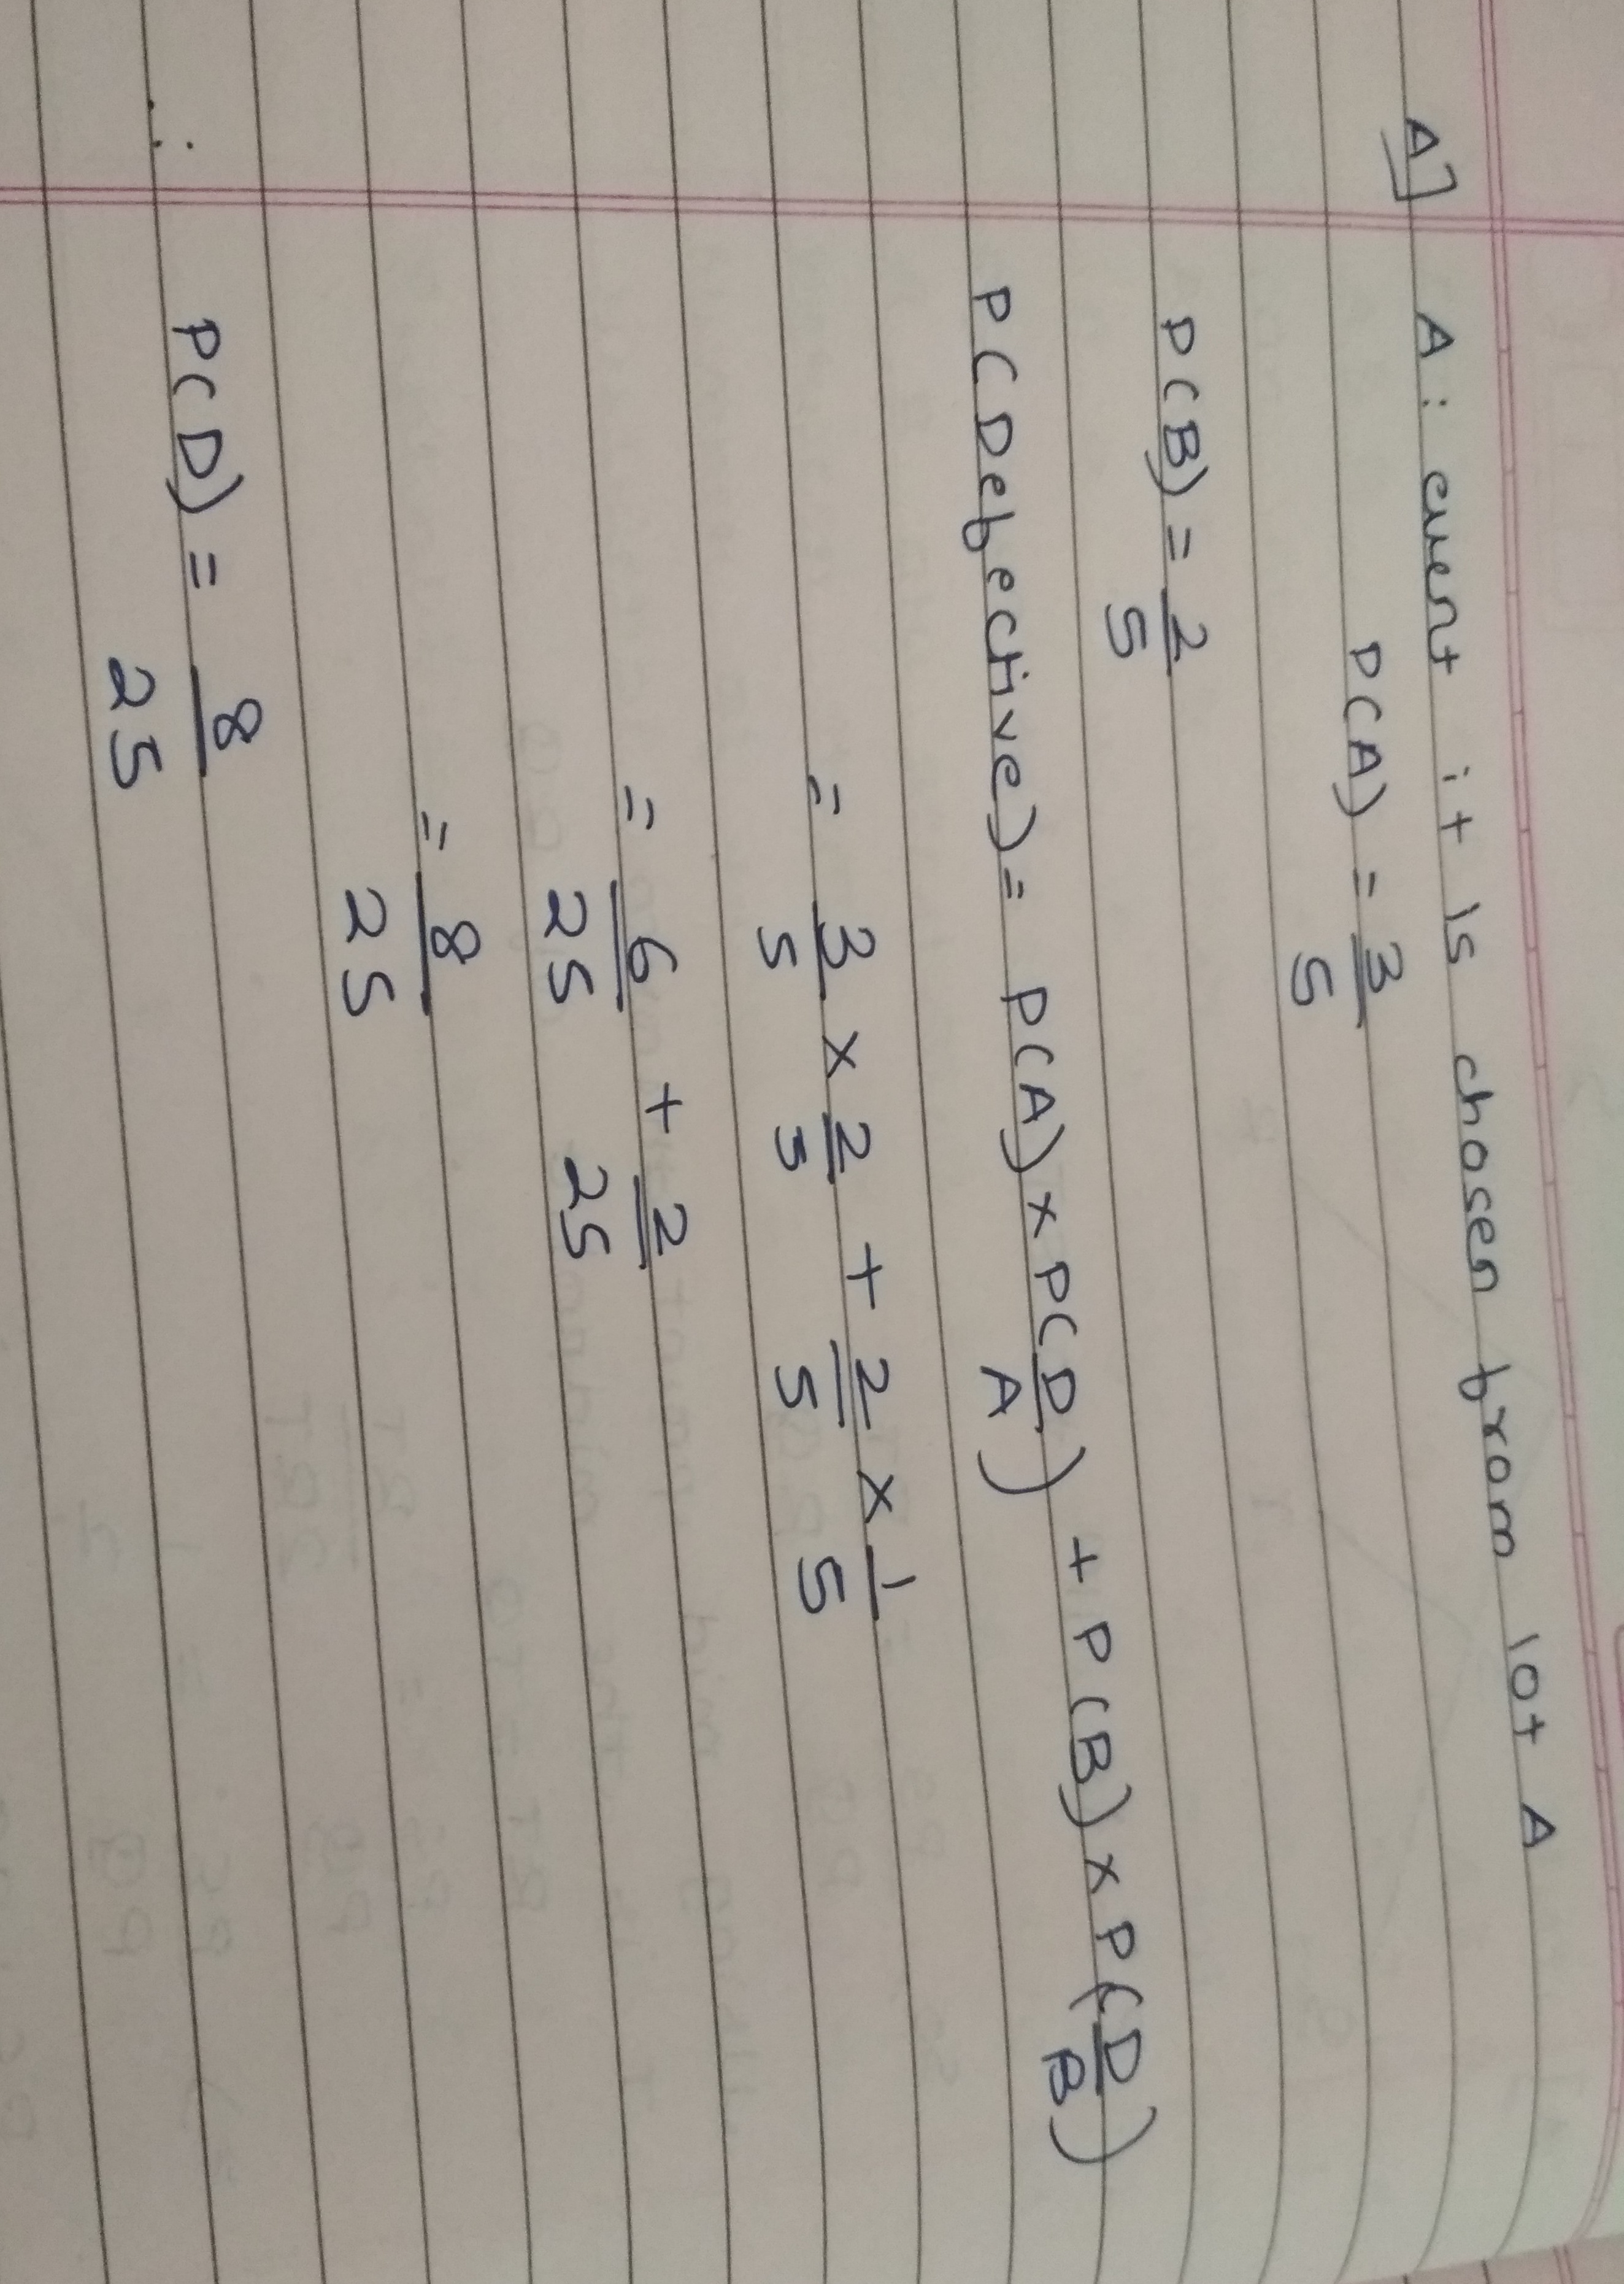 A] A: event it is chosen from lot A
P(A) = 3/5
P(B) = 2/5
P(Defective) = P(A) x P(D/A) + P(B) x P(D/B)
= 3/5 x 2/5 + 2/5 x 1/5
= 6/25 + 2/25
= 8/25
∴ P(D) = 8/25